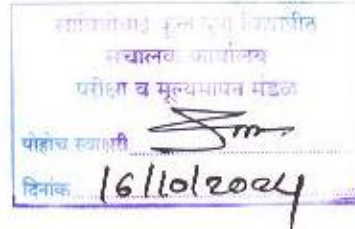 सावित्रीबाई फुले पुणे विद्यापीठ
संचालक कार्यालय
परीक्षा व मूल्यमापन मंडळ
पोहोच स्वाक्षरी
दिनांक 16/10/2024